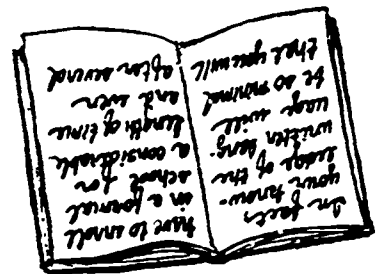 In fact,
your know-
ledge of the
written lang-
uage will
be so minimal
that you will
have to enroll
in a formal
school for
a considerable
length of time
and even
after several